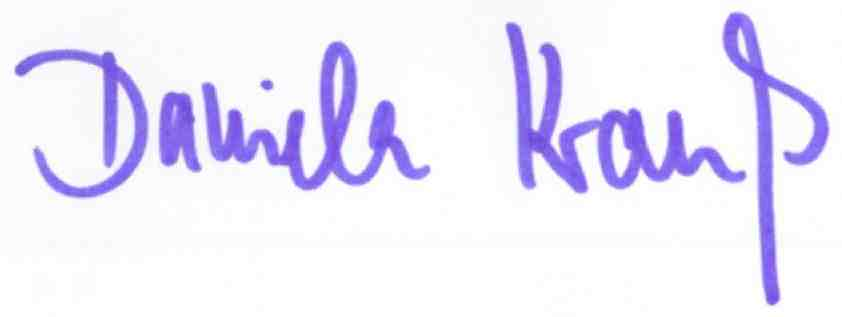 Daniela Krauß